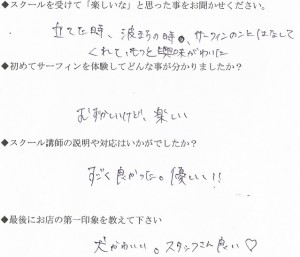 ◆スクールを受けて「楽しいな」と思った事をお聞かせください。
立てた時、波まちの時、サーフィンのことはなして
くれて、もっと興味がわいた
◆初めてサーフィンを体験してどんな事が分かりましたか？
むずかしいけど、楽しい
◆スクール講師の説明や対応はいかがでしたか？
すごく良かった。優しい!!
◆最後にお店の第一印象を教えて下さい
犬がかわいい。スタッフさん良い♡